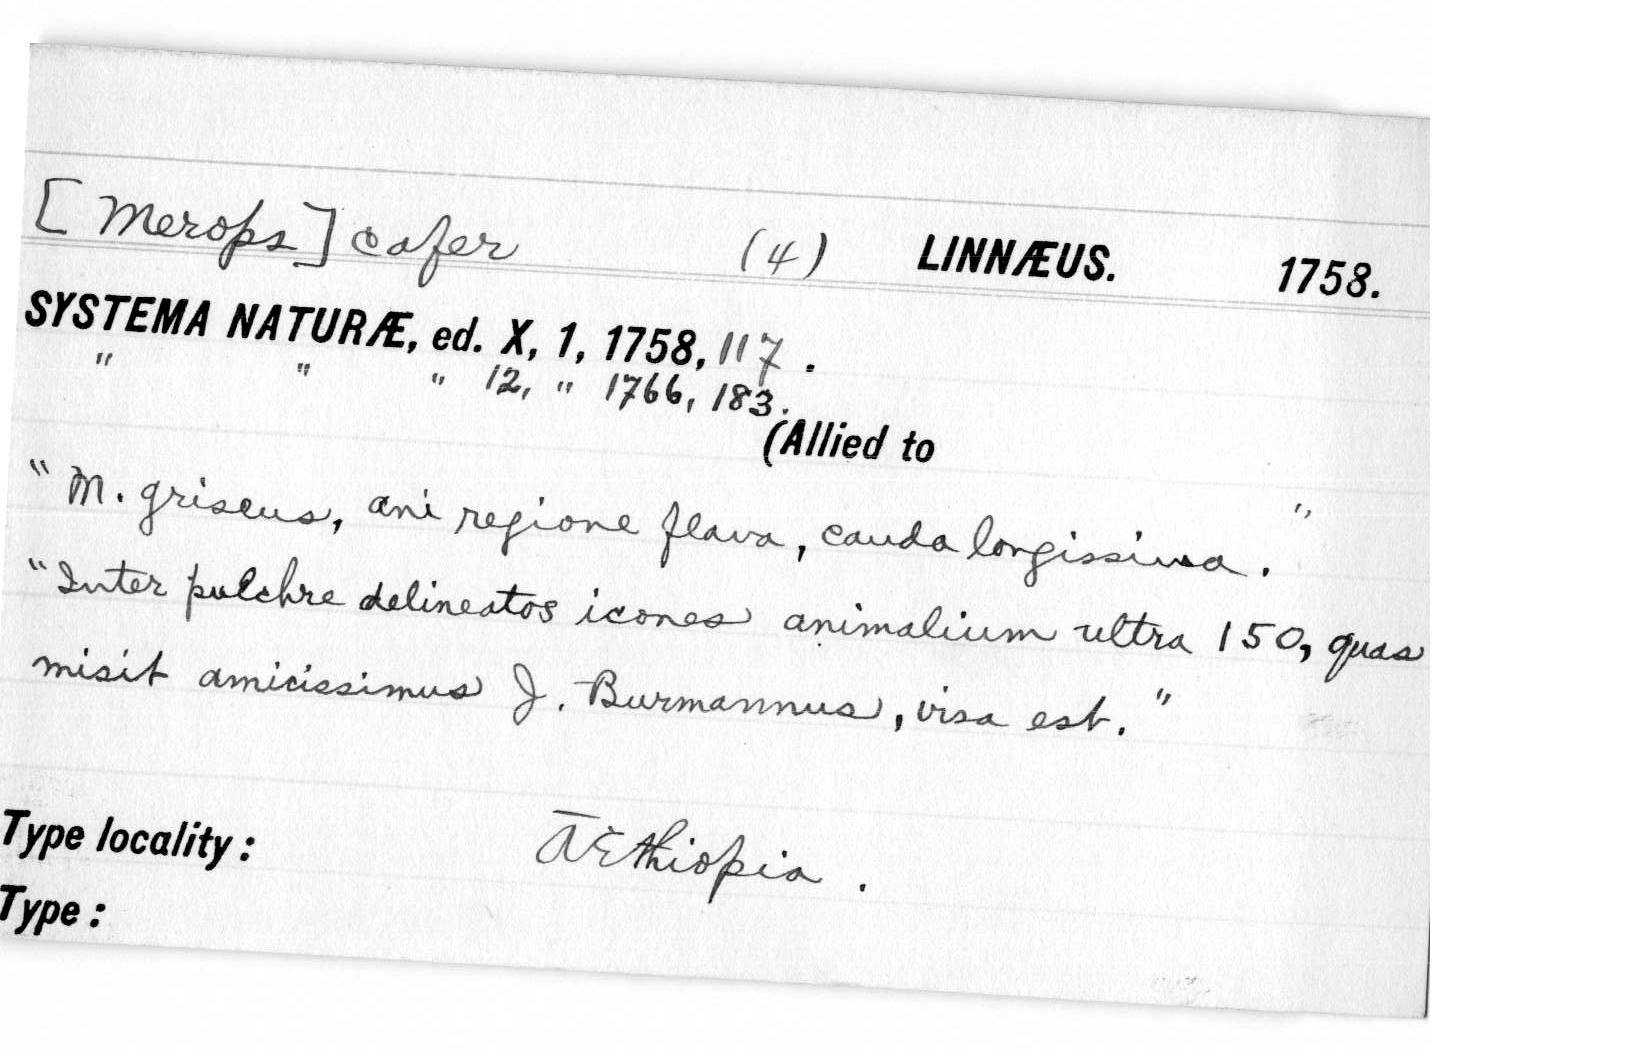 [Merops] cafer (4) LINNÆUS. 1758.
SYSTEMA NATURÆ, ed. X, 1, 1758, 117 .
" " " 12, " 1766, 183.
(Allied to
"M. griseus, ani regione flava, cauda longissima. "
"Inter pulchre delineatos icones animalium ultra 150, quas
misit amicissimus J. Burmannus, visa est."
Type locality : ÆEthiopia .
Type :